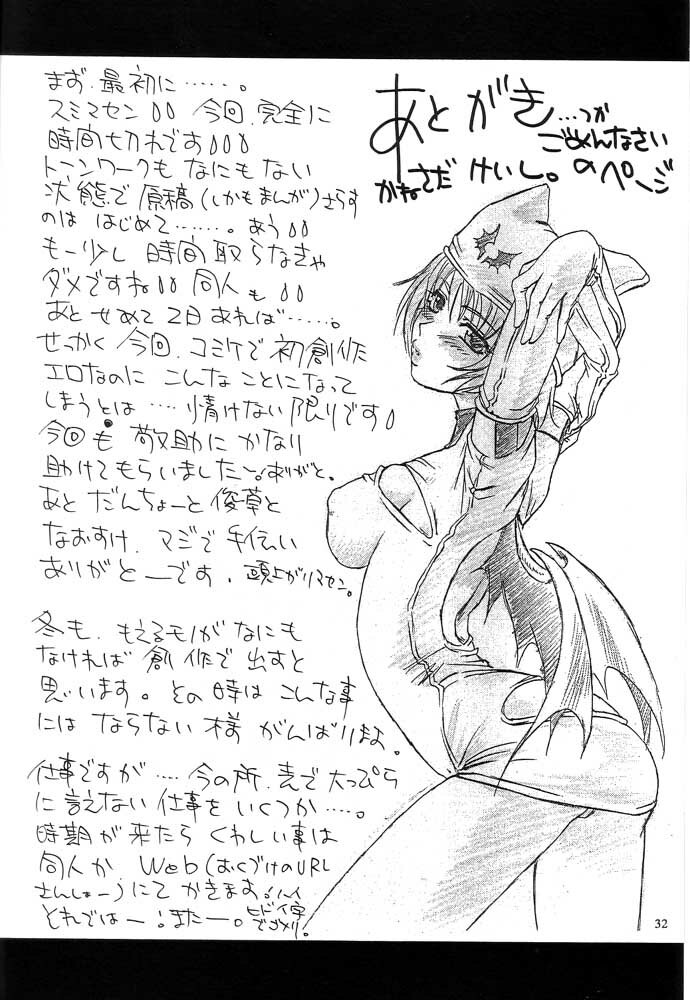 あとがき…つか
ごめんなさい
のページ
かねさだ けいし。
まず、最初に……。
スミマセン 今回、完全に
時間切れです
トーンワークも なにもない
状態で 原稿(しかもまんが)さらす
のは はじめて……。あう
もー少し 時間 取らなきゃ
ダメですね 同人も
あと せめて 2日 あれば……。
せっかく 今回、コミケで 初創作
エロなのに こんな ことになって
しまうとは… 情けない 限りです
今回も 敬助に かなり
助けて もらいましたー。ありがと。
あと だんちょーと 俊草と
なおすけ、マジで 手伝い
ありがとーです。頭上がりマセン。
冬も、もえるモノが なにも
なければ 創作で 出すと
思います。その時は こんな事
には ならない 様 がんばりまよ。
仕事ですが…. 今の所、表で 大っぴら
に 言えない 仕事を いくつか….。
時期が 来たら くわしい事は
同人か Web(おくづけのURL
さんしょー)にて かきます!ハイ
それではー!またー。ヒドイ字
でゴメリ!
32